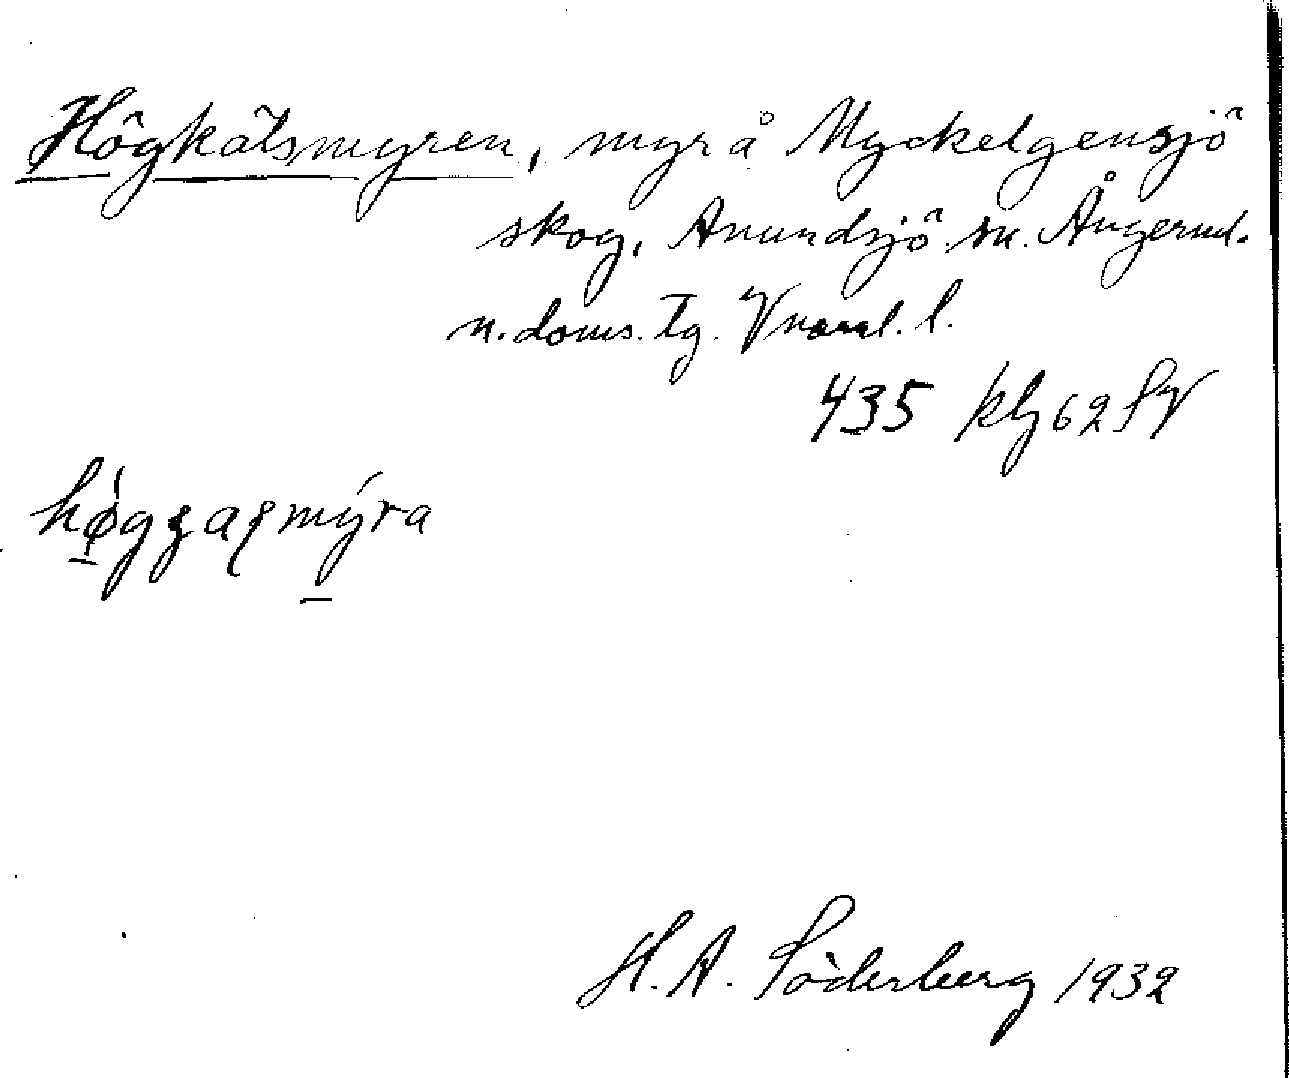 Högkätsmyren, myr å Myckelgensjö
skog, Anundsjö sn. Ångerml.
n. doms. tg. Vnorrl. l.
435 kbl 62 SV
H. A. Söderberg 1932